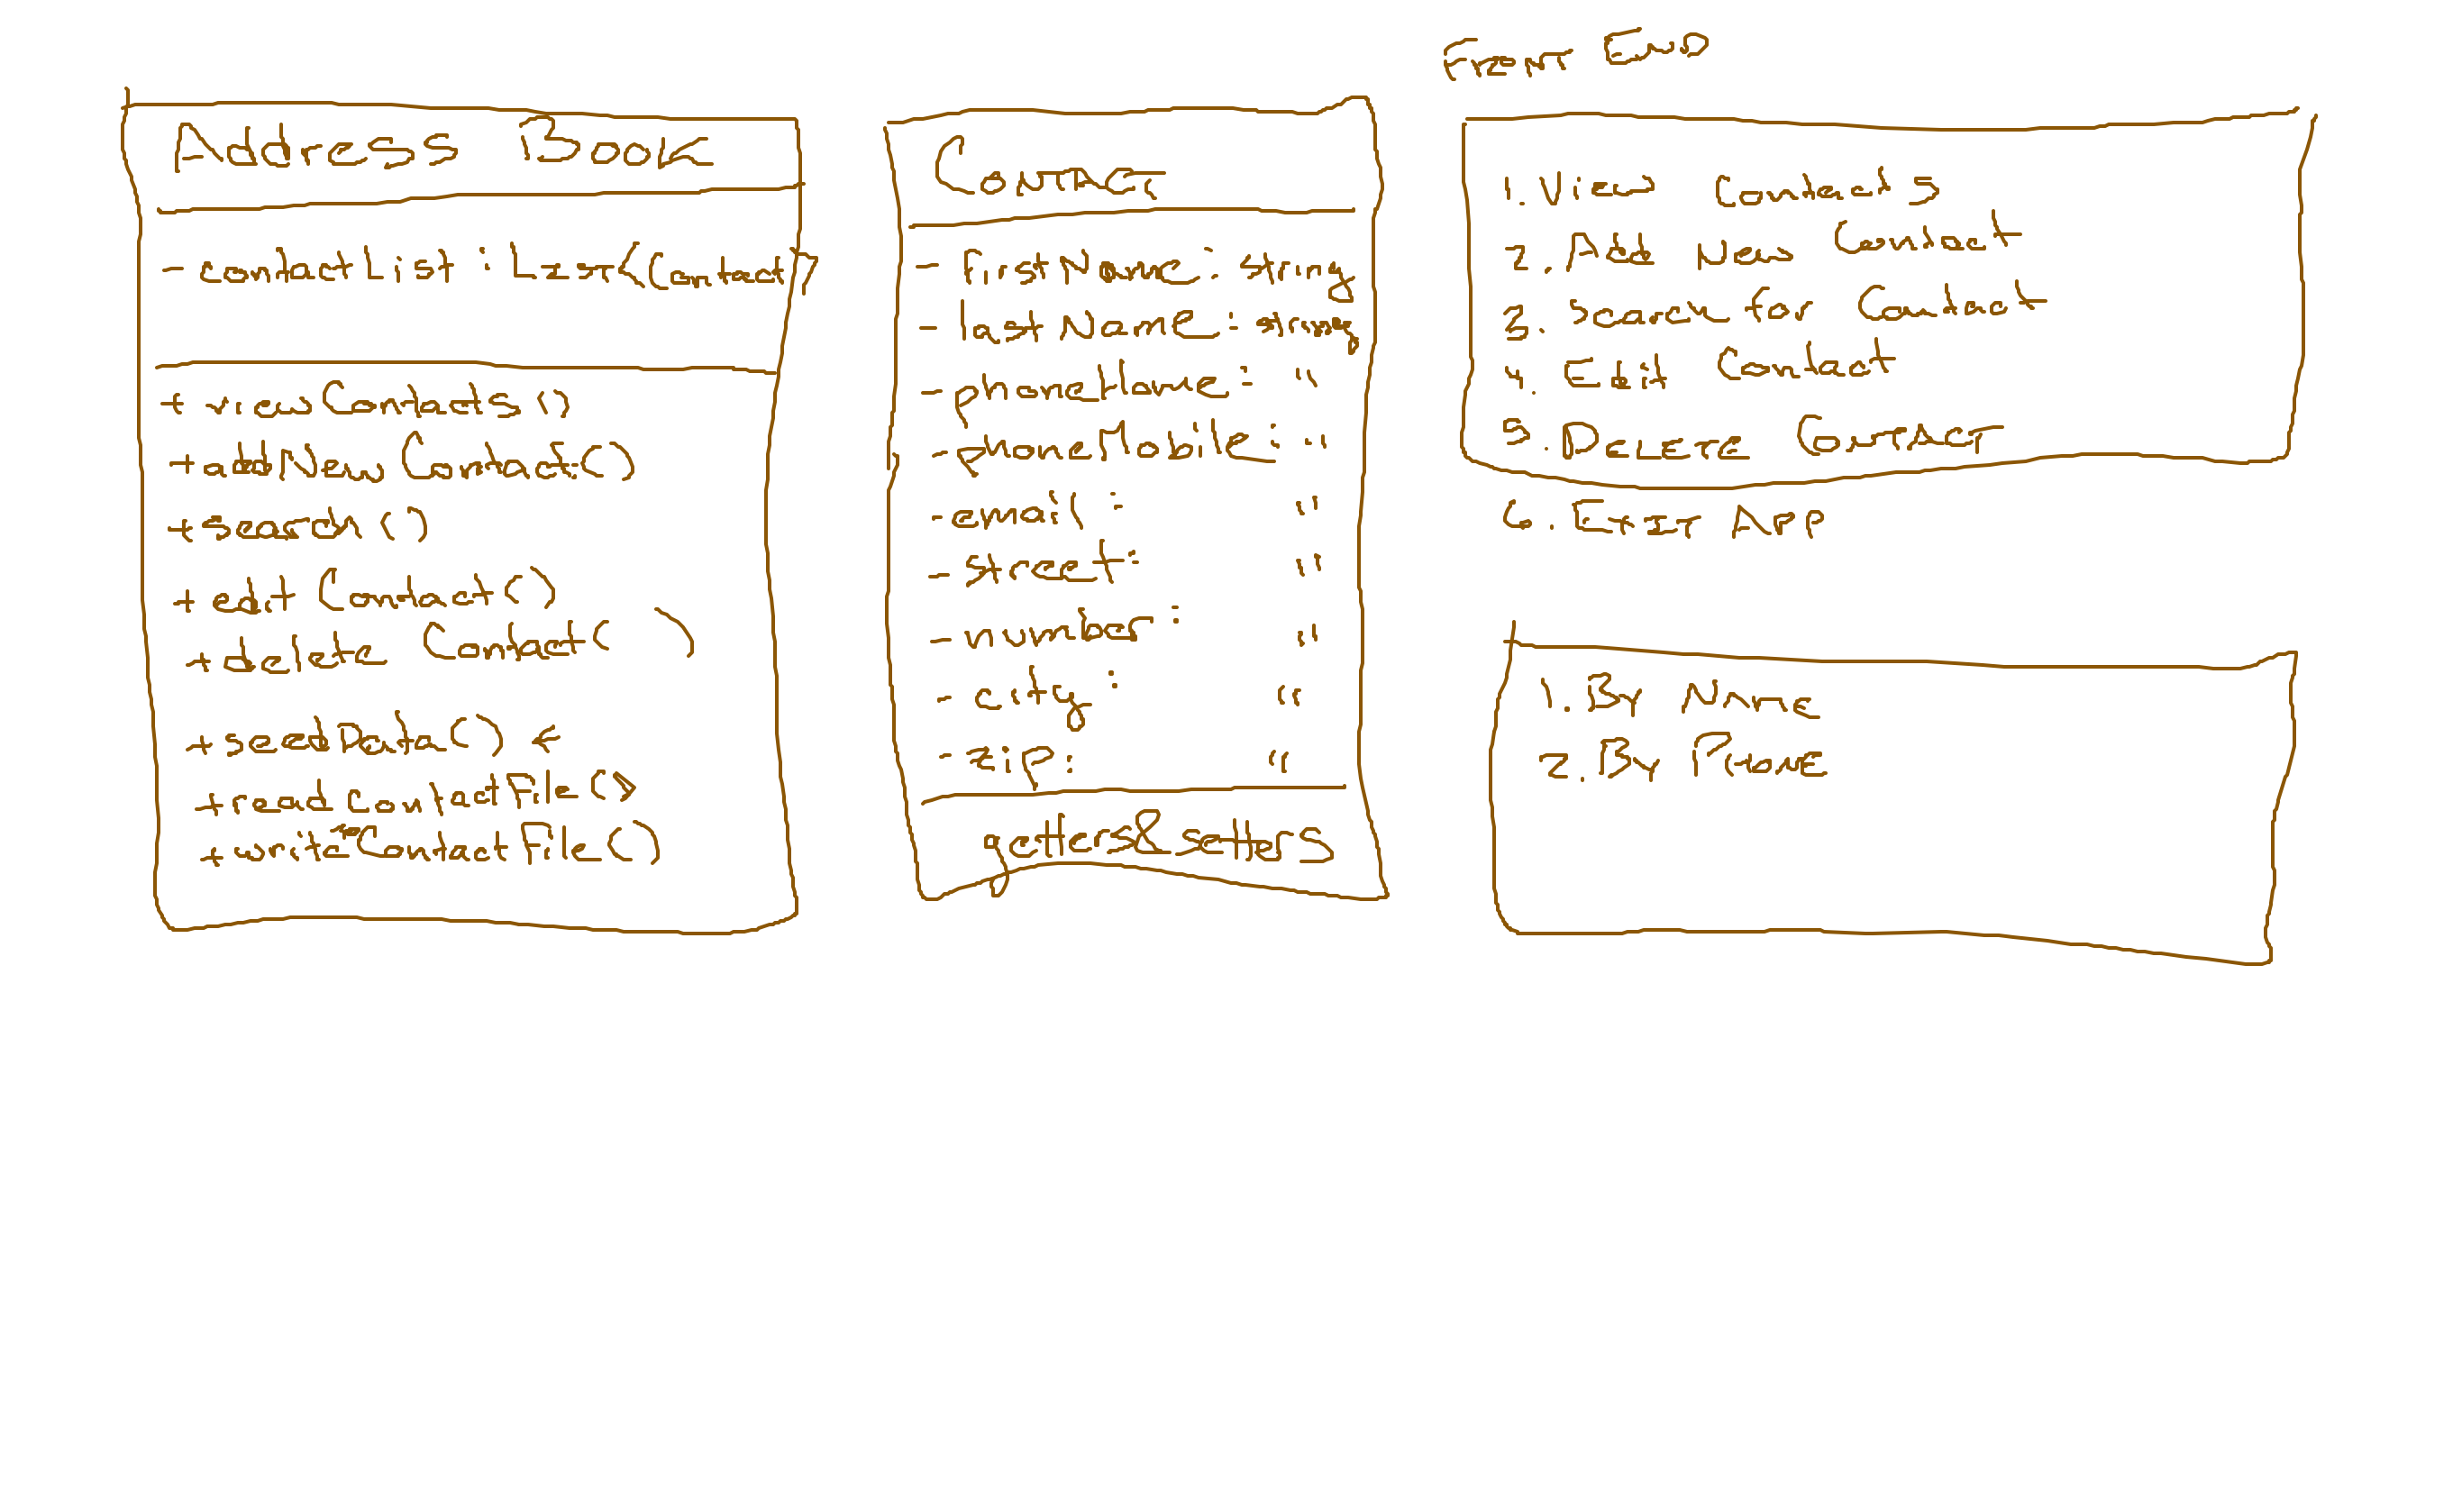 Address Book
- contactlist : List<Contact>
+ viewContacts()
+ addNewContact()
+ search()
+ editContact()
+ deleteContact( )
+ sendEmail() <
+ readContactFile()
+ writeContactFile()
Contact
- firstName : string
- last Name : string
- phoneHome : "
- phoneMobile : "
- email : "
- street : "
- number : "
- city : "
- zip : "
getters & setters
FRONT END
1. View Contacts
2. Add New Contact
3. Search for Contact
4. Edit Contact
5. DELETE Contact
6. EXIT APP
1. By Name
2. By Phone